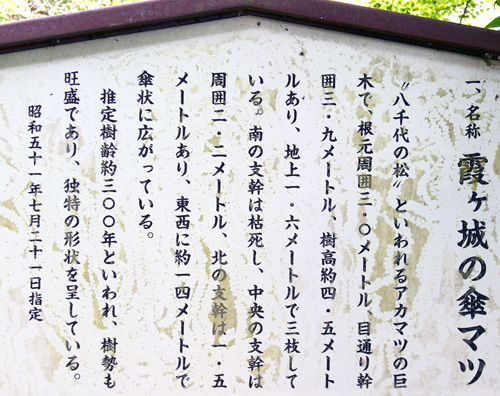 一、名称 霞ヶ城の傘マツ
〝八千代の松〟といわれるアカマツの巨
木で、根元周囲三・〇メートル、目通り幹
囲三・九メートル、樹高約四・五メート
ルあり、地上一・六メートルで三枝して
いる。南の支幹は枯死し、中央の支幹は
周囲二・二メートル、北の支幹は一・五
メートルあり、東西に約一四メートルで
傘状に広がっている。
推定樹齢約三〇〇年といわれ、樹勢も
旺盛であり、独特の形状を呈している。
昭和五十一年七月二十一日指定